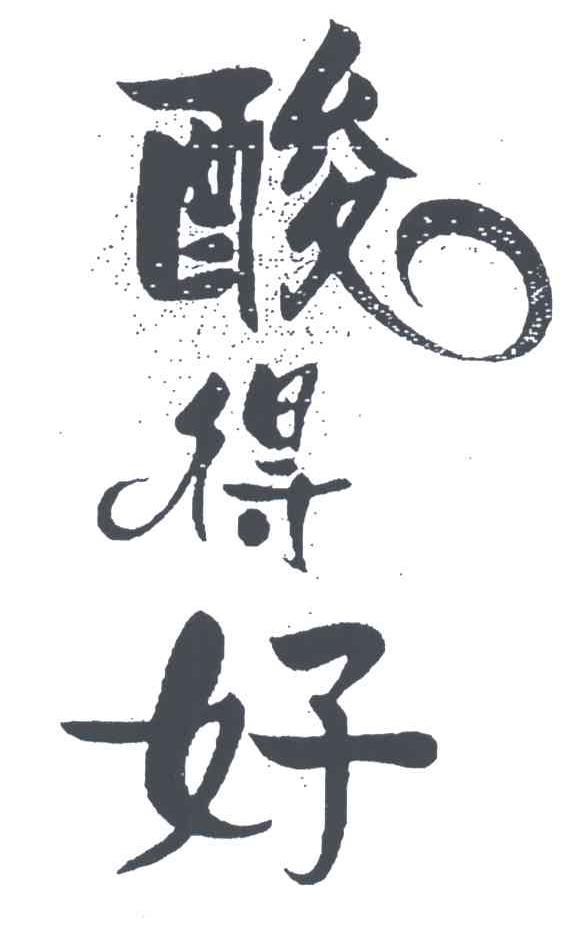 酸得好